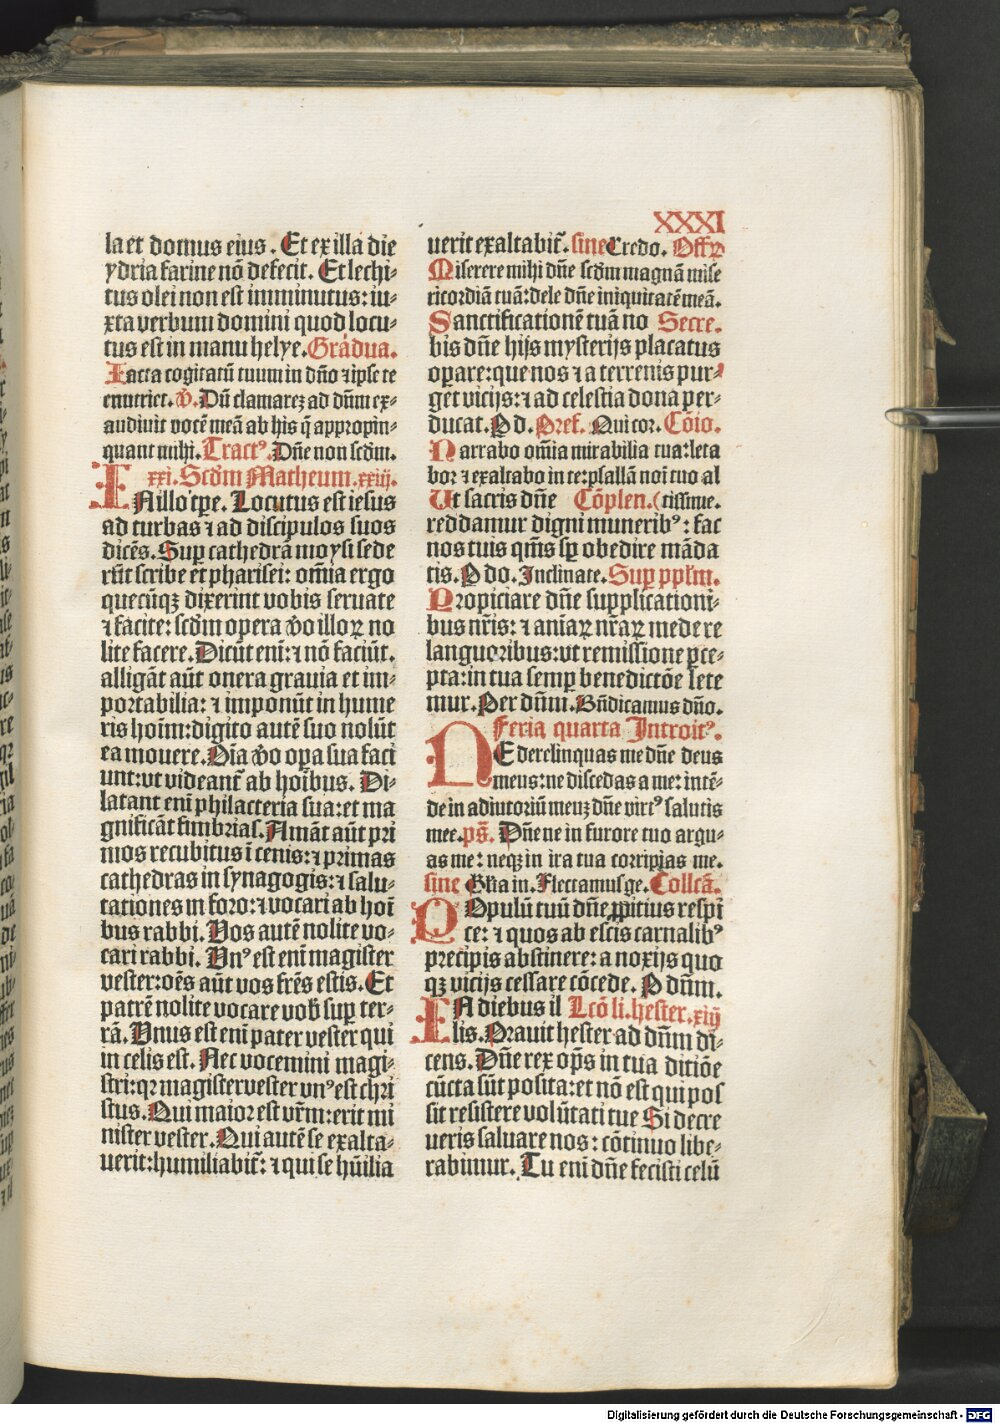 XXXI
la et domus eius. Et ex illa die
ydria farine nō defecit. Et lechi⸗
tus olei non est imminutus: iu⸗
xta verbum domini quod locu⸗
tus est in manu helye. Gradua.
Iacta cogitatū tuum in dño ⁊ ipse te
enutriet. ꝟ. Dū clamarez ad dñm ex⸗
audiuit vocē meā ab his q̄ appropin⸗
quant mihi. Tractꝰ. Dñe non scdm.
xxi. Scdm Matheum. xxiij.
IN illo tꝑe. Locutus est iesus
ad turbas ⁊ ad discipulos suos
dicēs. Suꝑ cathedrā moysi sede
rūt scribe et pharisei: om̄ia ergo
quecūqꝫ dixerint vobis seruate
⁊ facite: scdm opera ꝟo illoꝝ no
lite facere. Dicūt eni: ⁊ nō faciūt.
alligāt aūt onera grauia et im⸗
portabilia: ⁊ imponūt in hume
ris hoīm: digito autē suo nolūt
ea mouere. Oīa ꝟo oꝑa sua faci
unt: ut videantᷣ ab hoībus. Di⸗
latant enī philacteria sua: et ma
gnificāt fimbrias. Amāt aūt pri
mos recubitus ī cenis: ⁊ primas
cathedras in synagogis: ⁊ salu⸗
tationes in foro: ⁊ vocari ab hoī
bus rabbi. Vos autē nolite vo⸗
cari rabbi. Vnꝰ est enī magister
vester: oēs aūt vos frēs estis. Et
patrē nolite vocare vob̄ suꝑ ter⸗
rā. Vnus est enī pater vester qui
in celis est. Nec vocemini magi⸗
stri: qꝛ magister vester vnꝰ est chri
stus. Qui maior est vr̄m: erit mi
nister vester. Qui autē se exalta⸗
uerit: humiliabitᷣ: ⁊ qui se hūilia
uerit exaltabitᷣ. sine Credo. Offꝝ
Miserere mihi dñe scdm magnā mise
ricordiā tuā: dele dñe iniquitatē meā.
Sanctificationē tuā no Secre.
bis dñe hijs mysterijs placatus
oꝑare: que nos ⁊ a terrenis pur⸗
get vicijs: ⁊ ad celestia dona per⸗
ducat. P d. Pref. Qui cor. Cōio.
Narrabo om̄ia mirabilia tua: leta
bor ⁊ exaltabo in te: psallā noī tuo al
Ut sacris dñe Cōplen. (tissime.
reddamur digni muneribꝰ: fac
nos tuis qm̄s sꝑ obedire māda
tis. P do. Inclinate. Suꝑ ppl̄m.
Propiciare dñe suꝑplicationi⸗
bus nr̄is: ⁊ aniaꝝ nr̄aꝝ medere
languoribus: ut remissione ꝑce⸗
pta: in tua semꝑ benedictōe lete
mur. Per dñm. Bn̄dicamus dño.
Feria quarta Introitꝰ.
NE derelinquas me dñe deus
meus: ne discedas a me: intē⸗
de in adiutoriū meuꝫ dñe virtꝰ salutis
mee. ps̄. Dñe ne in furore tuo argu⸗
as me: neqꝫ in ira tua corripias me.
sine Glīa in. Flectamus ge. Collcā.
POpulū tuū dñe ꝓpitius respi
ce: ⁊ quos ab escis carnalibꝰ
precipis abstinere: a noxijs quo
qꝫ vicijs cessare cōcede. P dñm.
IN diebus il Lcō li. hester. xiij
lis. Orauit hester ad dñm di⸗
cens. Dñe rex op̄s in tua ditiōe
cūcta sūt posita: et nō est qui pos
sit resistere volūtati tue Si decre
ueris saluare nos: cōtinuo libe⸗
rabimur. Tu enī dñe fecisti celū
Digitalisierung gefördert durch die Deutsche Forschungsgemeinschaft - DFG